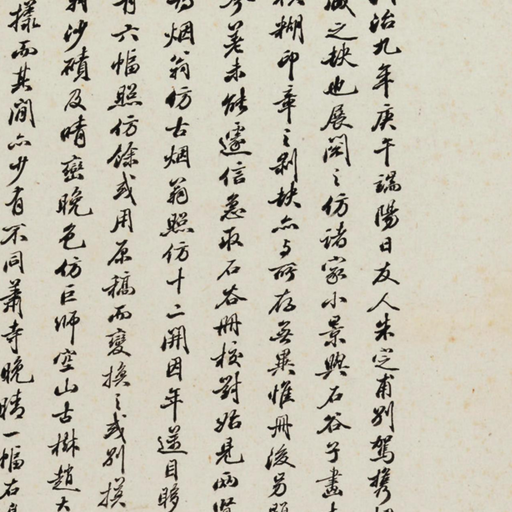 治九年庚午端陽日友人朱定甫別駕携
之缺也展閱之仿諸家小景與石谷子畫
模糊印章之剥缺亦与所存無異惟冊後另
差未能遽信急取石谷冊校對始見兩
烟翁仿古烟翁照仿十二開因年遠目眵
有六幅照仿餘或用原稿而變換之或別摸
沙磧及晴巒晚色仿巨師空山古樹趙大
樣而其間亦少有不同蕭寺晚晴一幅右